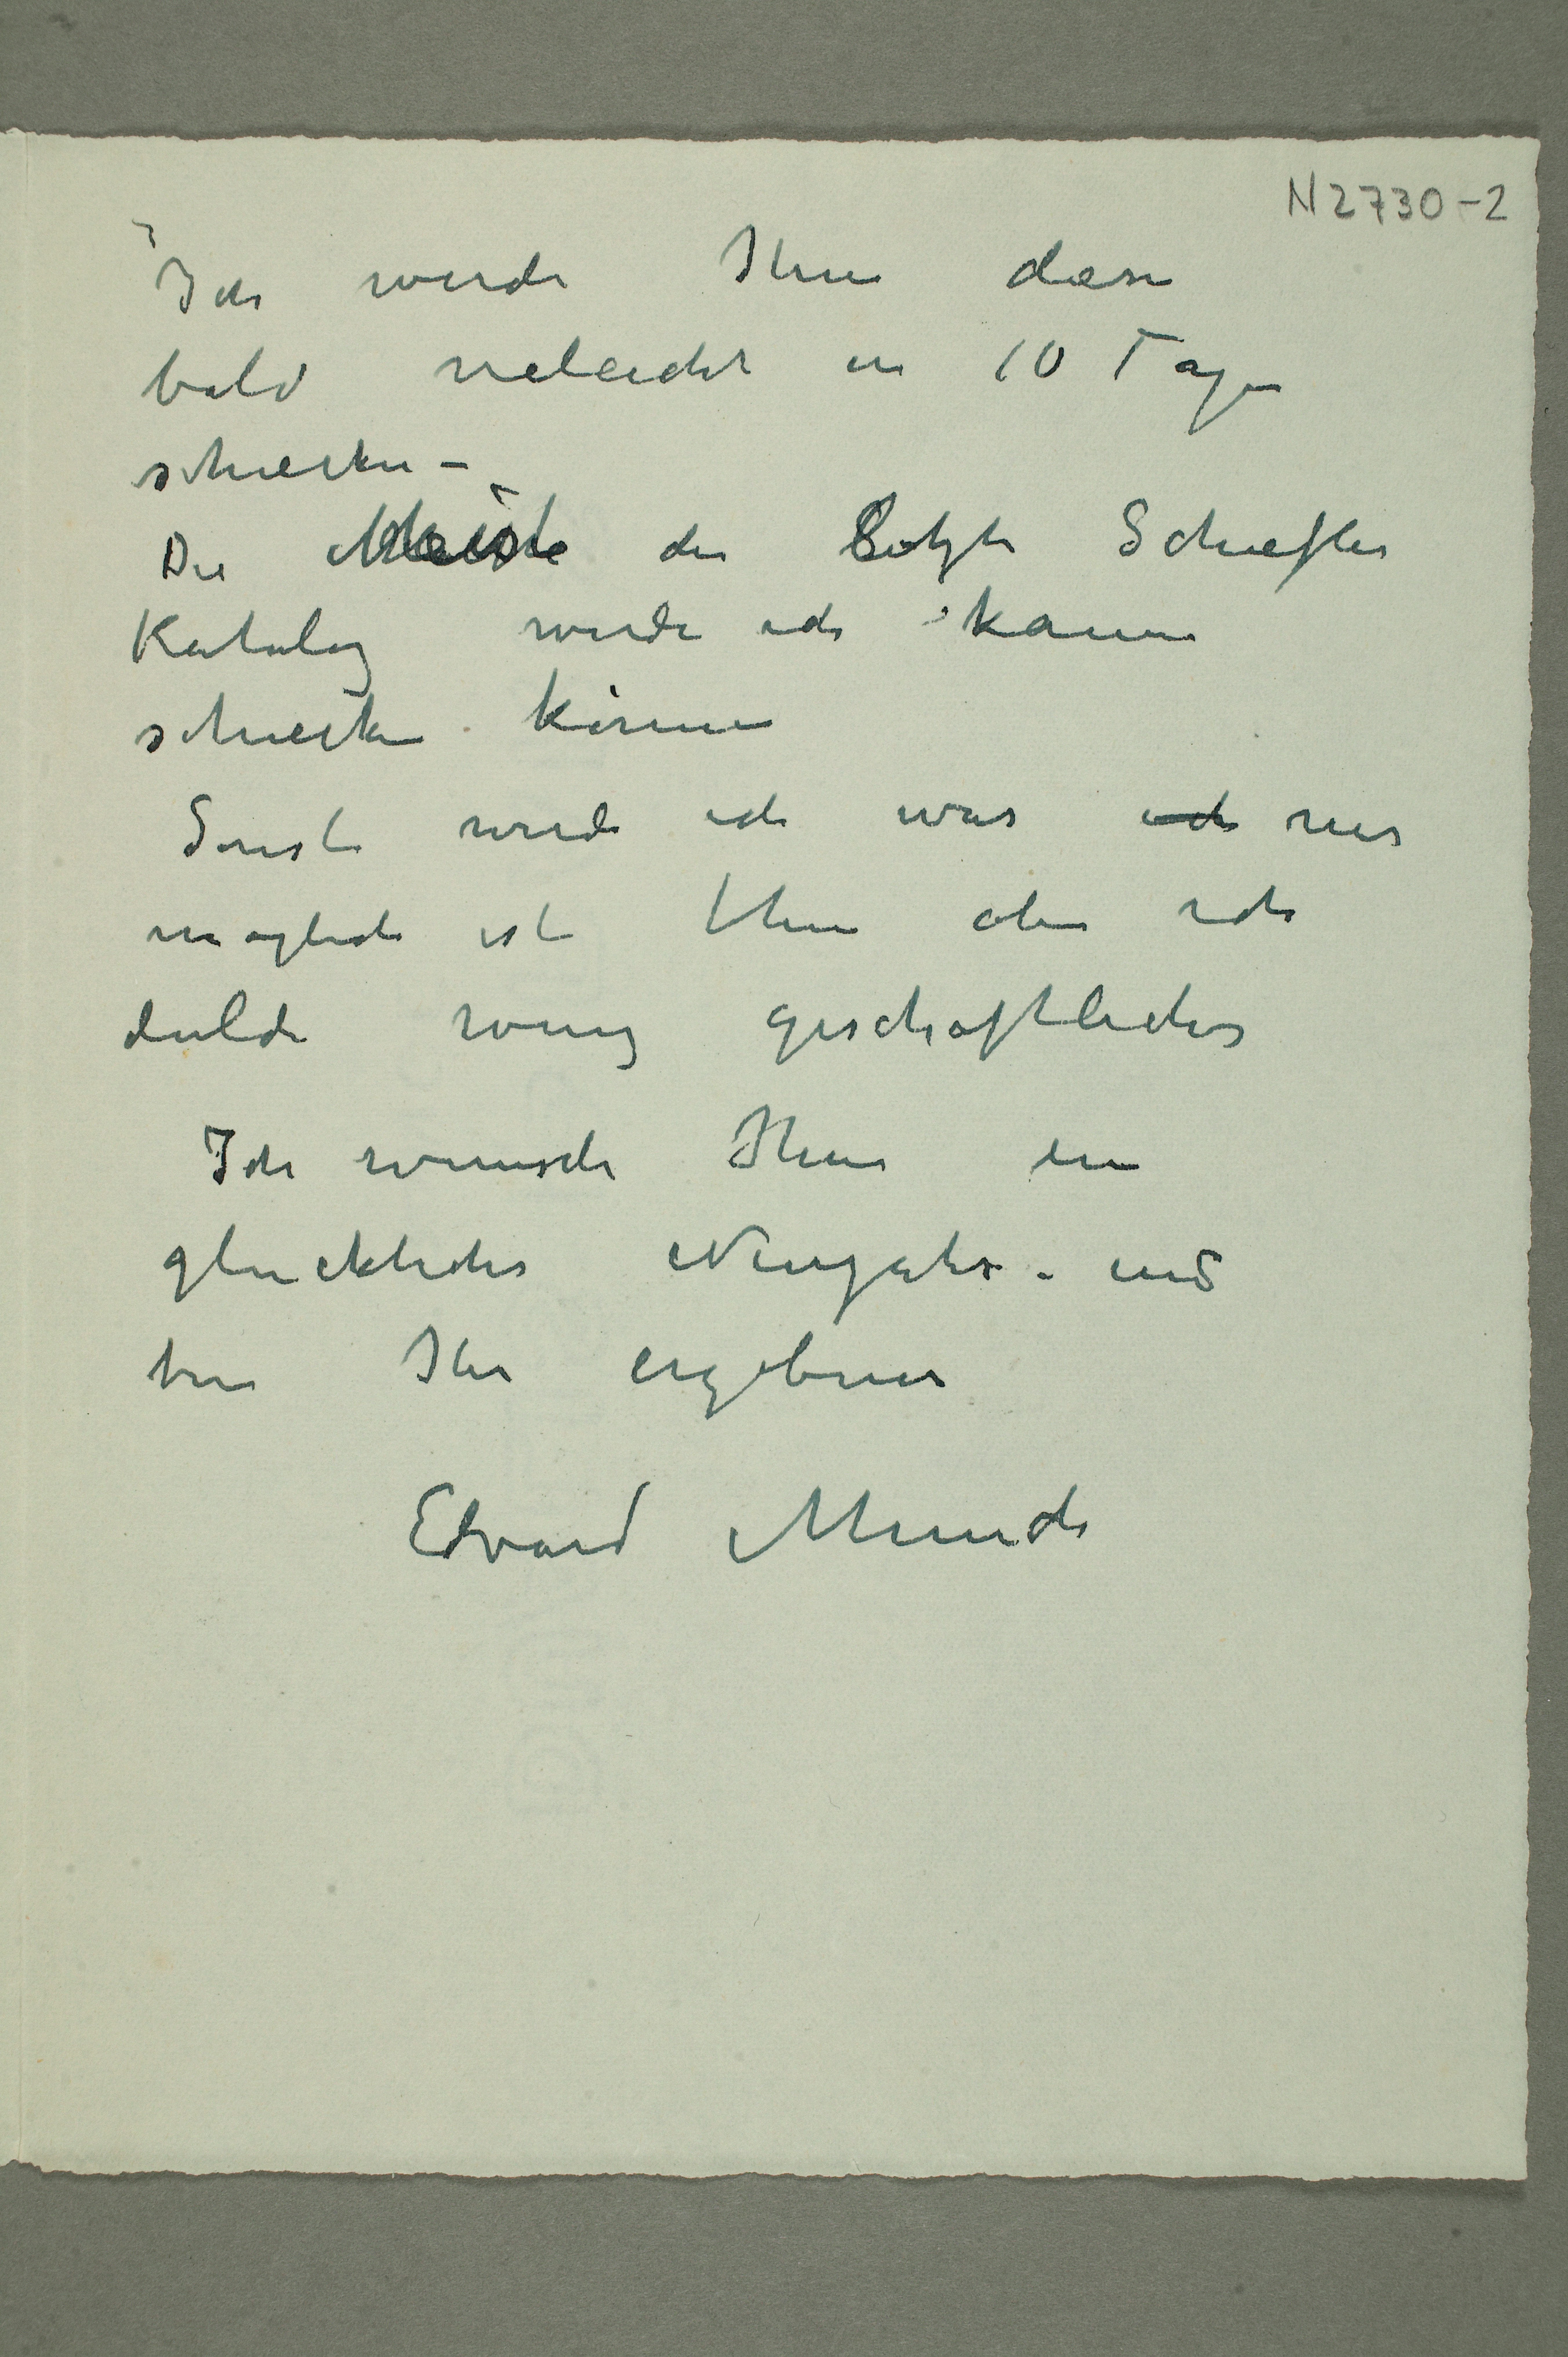 N2730-2
Ich werde Ihnen diese
bald vieleicht in 10 Tagen
schiecken –
Die Meiste der Letzte Schiefler
Katalog werde ich kaum
schiecken können
Sonst werde ich was ich mir
moglich ist thun aber ich
dulde wenig geschäftliches
Ich wunsche Ihnen ein
gluckliches Neujahr – und
bin Ihr ergebener
Edvard Munch